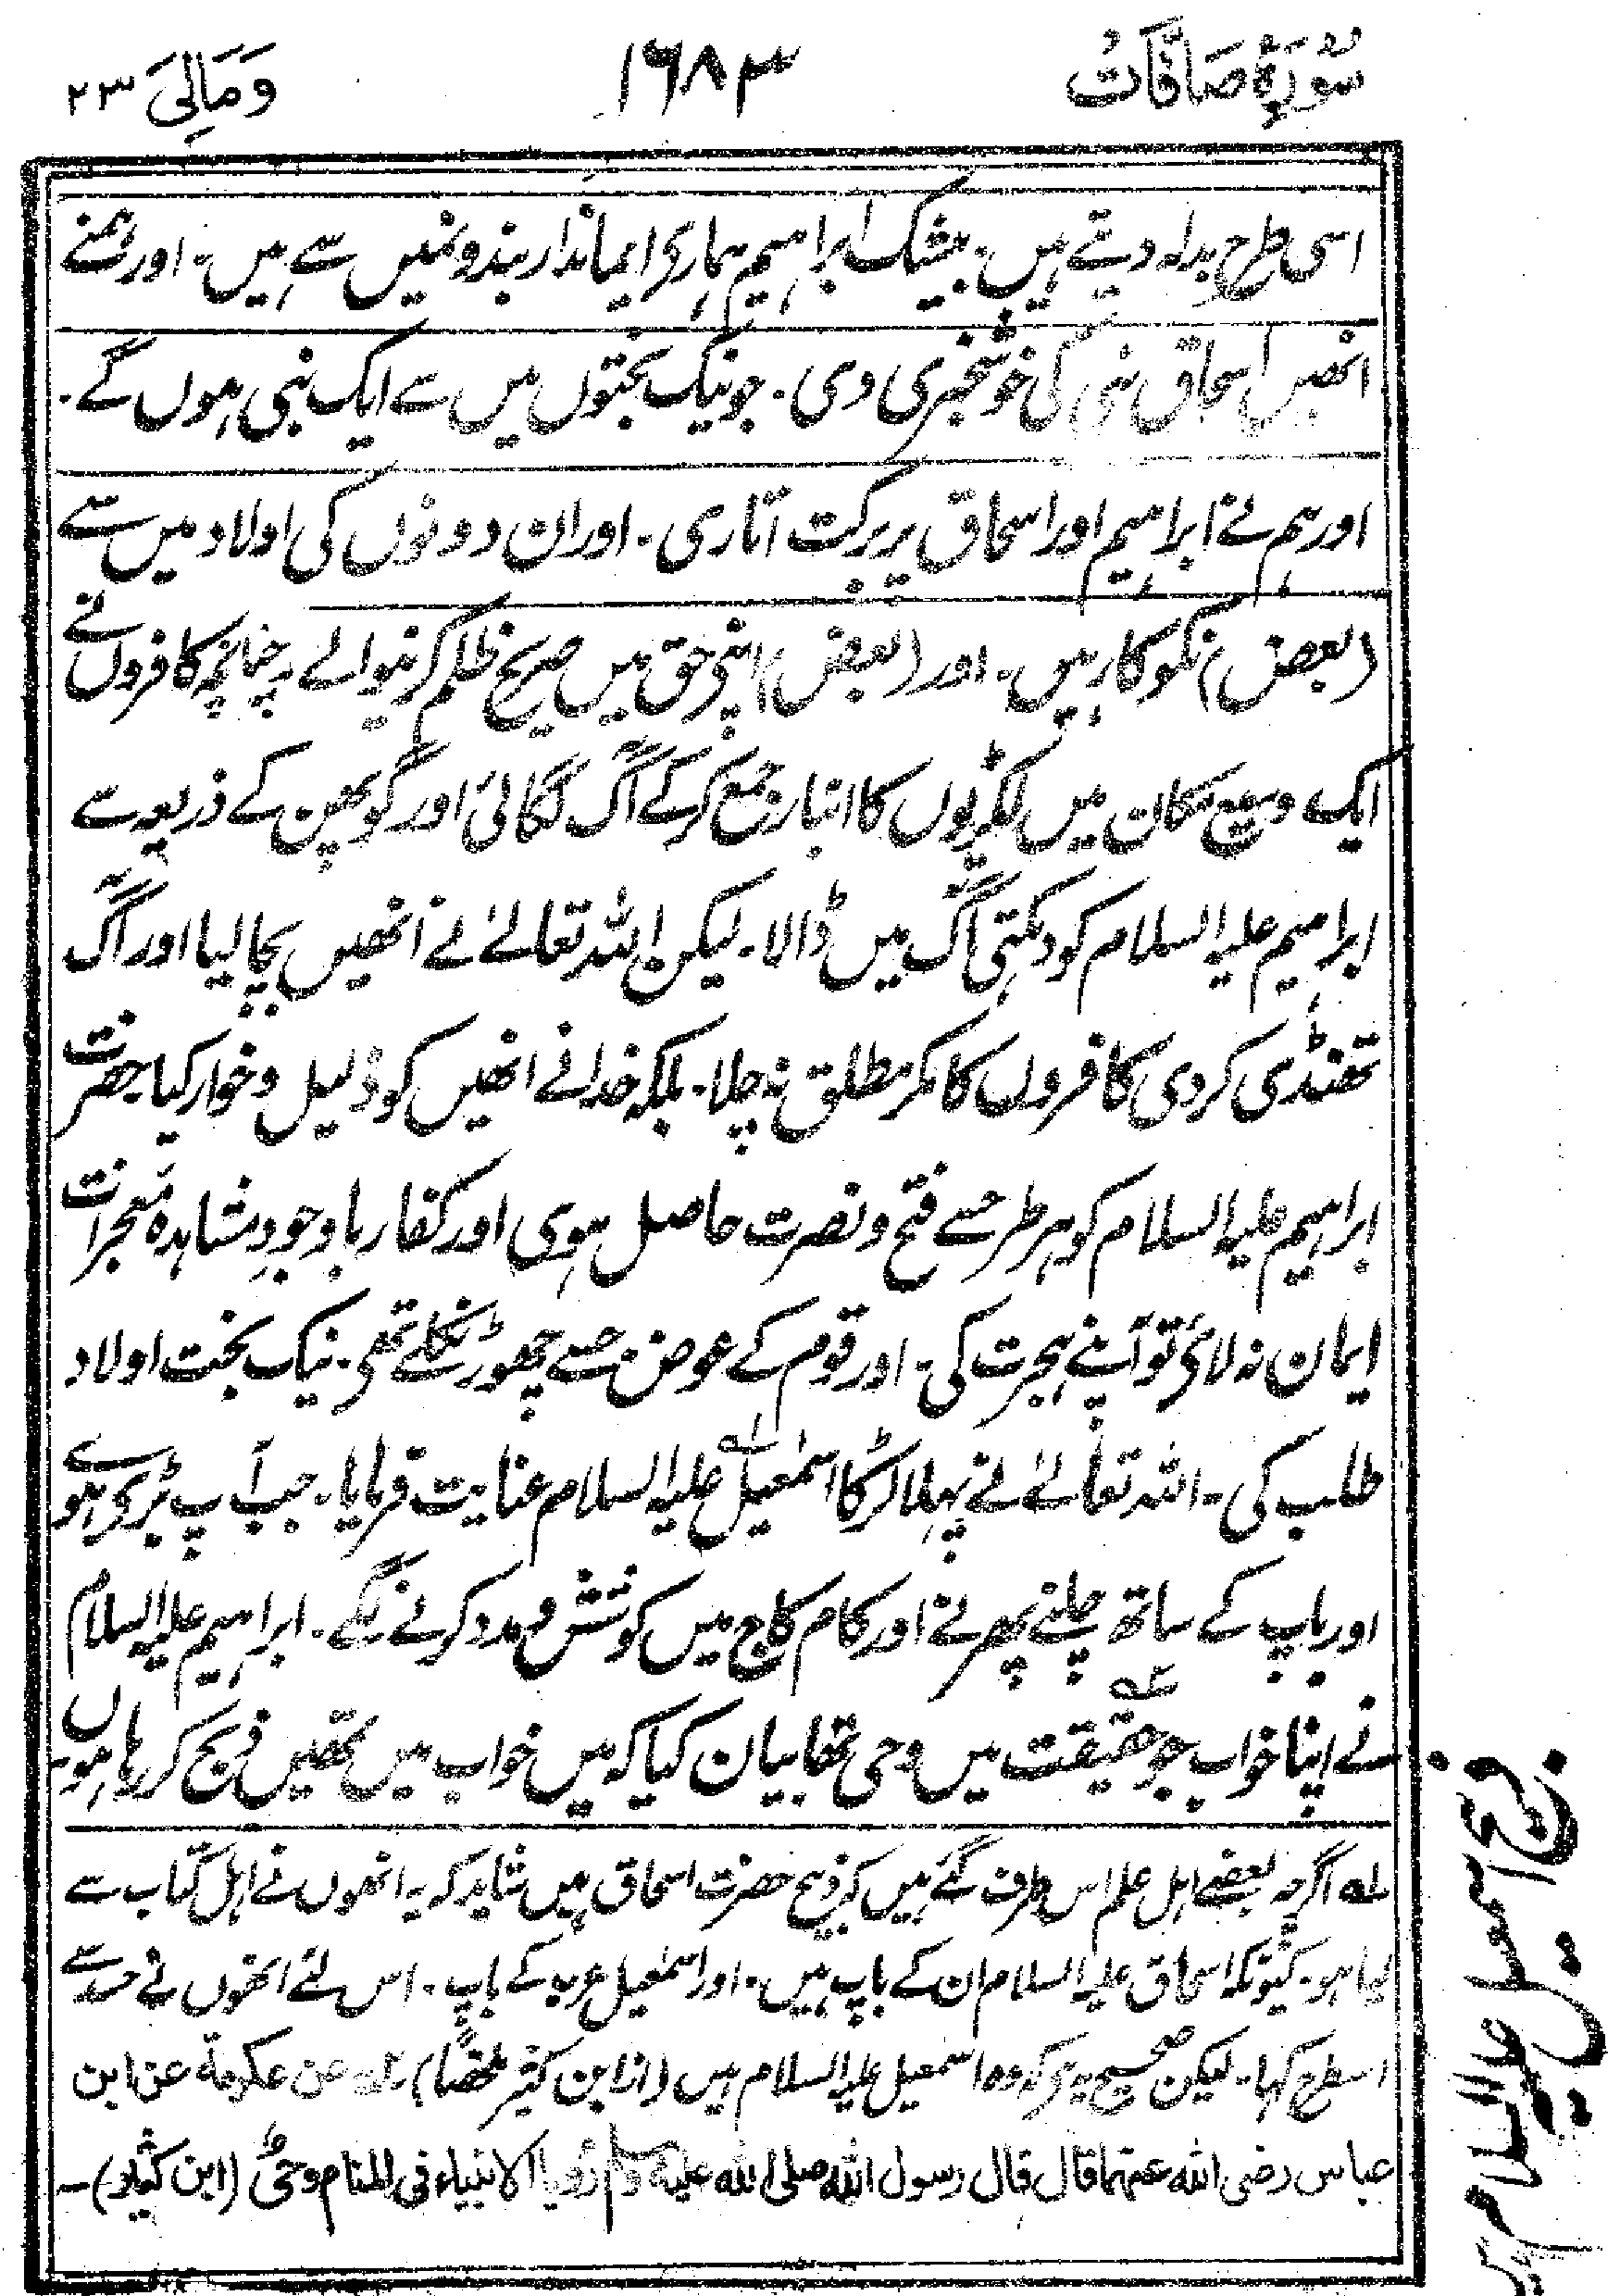 سُوْرَۃُ صَافَّات ۱۶۸۳ وَمَالِیَ ۲۳
اسی طرح بدلہ دیتے ہیں۔ بیشک ابراہیم ہماری ایماندار بندونمیں سے ہیں۔ اور ہمنے
انھیں اسحاق نبی کی خوشخبری دی۔ جو نیک بختوں میں سے ایک نبی ہوں گے۔
اور ہم نے ابراہیم اور اسحاق پر برکت اتاری۔ اور ان دونوں کی اولاد میں سے
(بعض) نکوکار ہیں۔ اور (بعض) اپنی حق میں صریح ظلم کرنیوالے۔ چنانچہ کافروں نے
ایک وسیع مکان میں لکڑیوں کا انبار جمع کر کے آگ لگائی اور گوپھن کے ذریعہ سے
ابراہیم علیہ السلام کو دہکتی آگ میں ڈالا۔ لیکن اللہ تعالےٰ نے انھیں بچالیا اور آگ
ٹھنڈی کردی کافروں کا مکر مطلق نہ چلا۔ بلکہ خدا نے انھیں کو ذلیل و خوار کیا حضرت
ابراہیم علیہ السلام کو ہر طرحسے فتح و نصرت حاصل ہوی اور کفار باوجودِ مشاہدہ معجزات
ایمان نہ لائی تو آپنے ہجرت کی۔ اور قوم کے عوض جسے چھوڑ نکلے تھی۔ نیک بخت اولاد
طلب کی۔ اللہ تعالےٰ نے پہلا لڑکا اسمٰعیل ۱؎ علیہ السلام عنایت فرمایا۔ جب آپ بڑی ہوے
اور باپ کے ساتھ چلنے پھرنے اور کام کاج میں کوشش و مدد کرنے لگے۔ ابراہیم علیہ السلام
نے اپنا خواب جو حقیقت ۲؎ میں وحی تھا بیان کیا کہ میں خواب میں تمھیں ذبح کر رہا ہوں
۱؎ اگرچہ بعضے اہل علم اس طرف گئے ہیں کہ ذبیح حضرت اسحاق ہیں شاید کہ یہ انھوں نے اہل کتاب سے
لیا ہو۔ کیونکہ اسحاق علیہ السلام ان کے باپ ہیں۔ اور اسمٰعیل عرب کے باپ۔ اس لئے انھوں نے حسد سے
اسطرح کہا۔ لیکن صحیح یہ ہی کہ وہ اسمٰعیل علیہ السلام ہیں (از ابن کثیر ملخصًا) ۲؎ عن عکرمة عن ابن
عباس رضی اللہ عنہما قال قال رسول اللہ صلی اللہ علیہ وسلم رؤیا الانبیاء فی المنام وحیٌ (ابن کثیر)۔
ذبح اسمٰعیل علیہ السلام